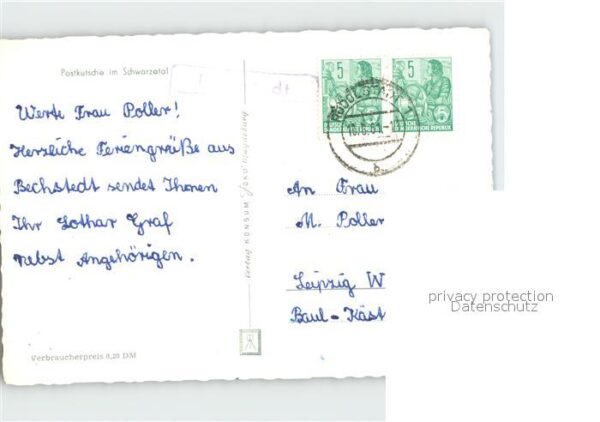 Postkutsche im Schwarzatal
Werte Frau Poller!
Herzliche Feriengrüße aus
Bechstedt sendet Ihnen
Ihr Lothar Graf
nebst Angehörigen.
Verbraucherpreis 0,20 DM
Verlag KONSUM
5
5
DEUTSCHE
DEMOKRATISCHE REPUBLIK
RUDOLSTADT 1
b
An Frau
M. Poller
Leipzig W
Baul-Käst
privacy protection
Datenschutz